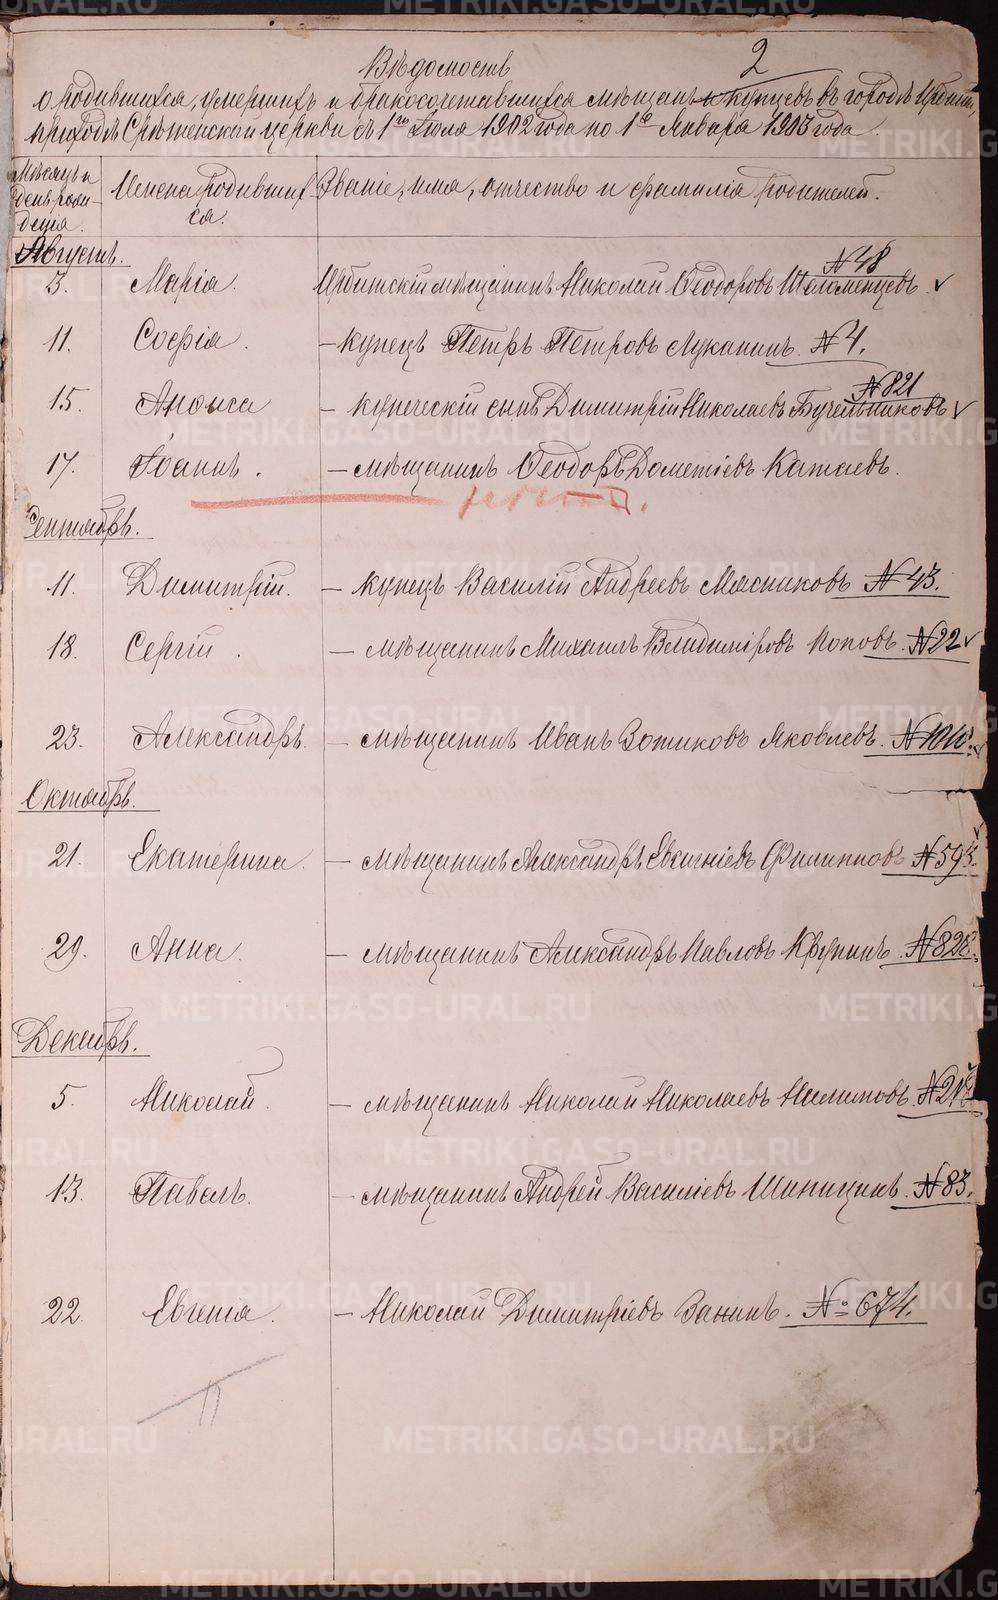 2
Вѣдомость
о родившихся, умершихъ и бракосочетавшихся мѣщанъ и купцевъ въ городѣ Ирбити,
приходѣ Срѣтенской церкви съ 1го Іюля 1902 года по 1е Января 1903 года.
Мѣсяцъ и день рожденія.
Имена родившихся.
Званіе, имя, отчество и фамилія родителей.
Августъ.
3. Марія. Ирбитскій мѣщанинъ Николай Ѳеодоровъ №48
11. Софія. – купецъ Петръ Петровъ Луканинъ. №4.
15. – купеческій сынъ Димитрій Николаевъ №821
17. Іоаннъ. – мѣщанинъ Ѳеодоръ Дометіевъ Катаевъ.
Сентябрь.
11. Димитрій. – купецъ Василій Андреевъ Мясниковъ №43.
18. Сергій. – мѣщанинъ Михаилъ Владиміровъ Поповъ. №22
23. Александръ. – мѣщанинъ Иванъ Зотиковъ Яковлевъ.
Октябрь.
21. Екатерина. – мѣщанинъ Александръ Евгеніевъ Филипповъ
29. Анна. – мѣщанинъ Александръ Павловъ Крупинъ.
Декабрь.
5. Николай. – мѣщанинъ Николай Николаевъ
13. Павелъ. – мѣщанинъ Андрей Василіевъ Шипицинъ. №83.
22. Евгенія. – Николай Димитріевъ Занинъ. №674.
METRIKI.GASO-URAL.RU